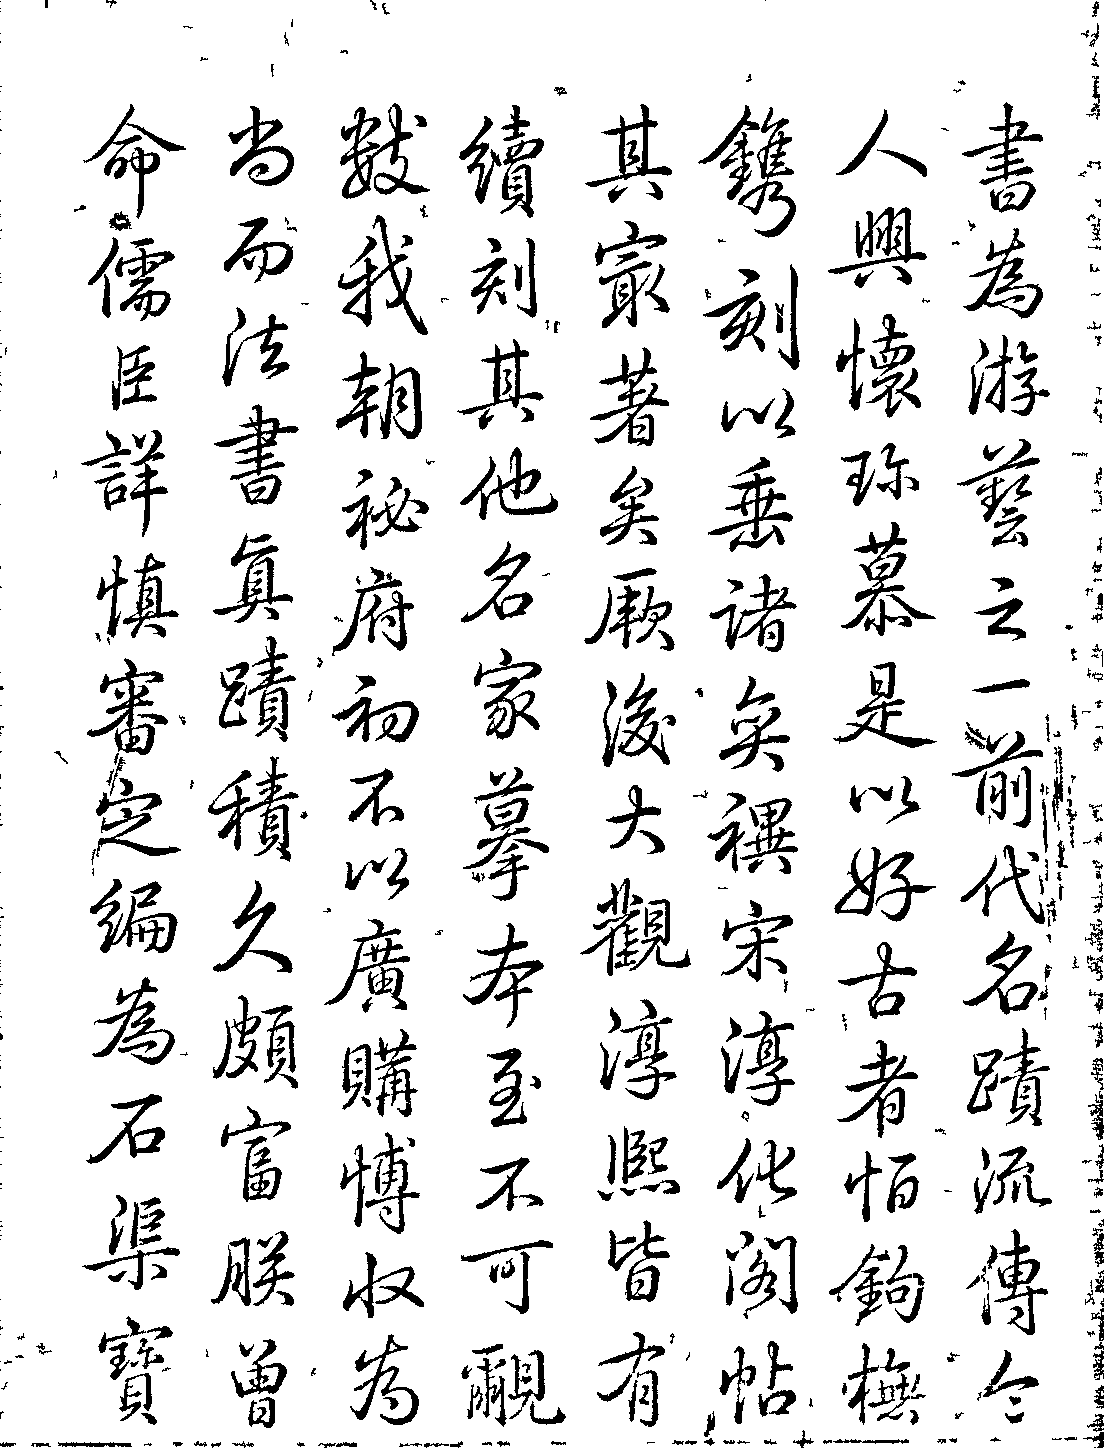 書為游藝之一前代名蹟流傳令
人興懷珎慕是以好古者怕鉤橅
鐫刻以垂諸奕禩宋淳化閣帖
其㝡著矣厥後大觀淳熙皆有
續刻其他名家摹本至不可覼
數我朝祕府初不以廣購博收為
尚而法書真蹟積久頗富朕曾
命儒臣詳慎審定編為石渠寶